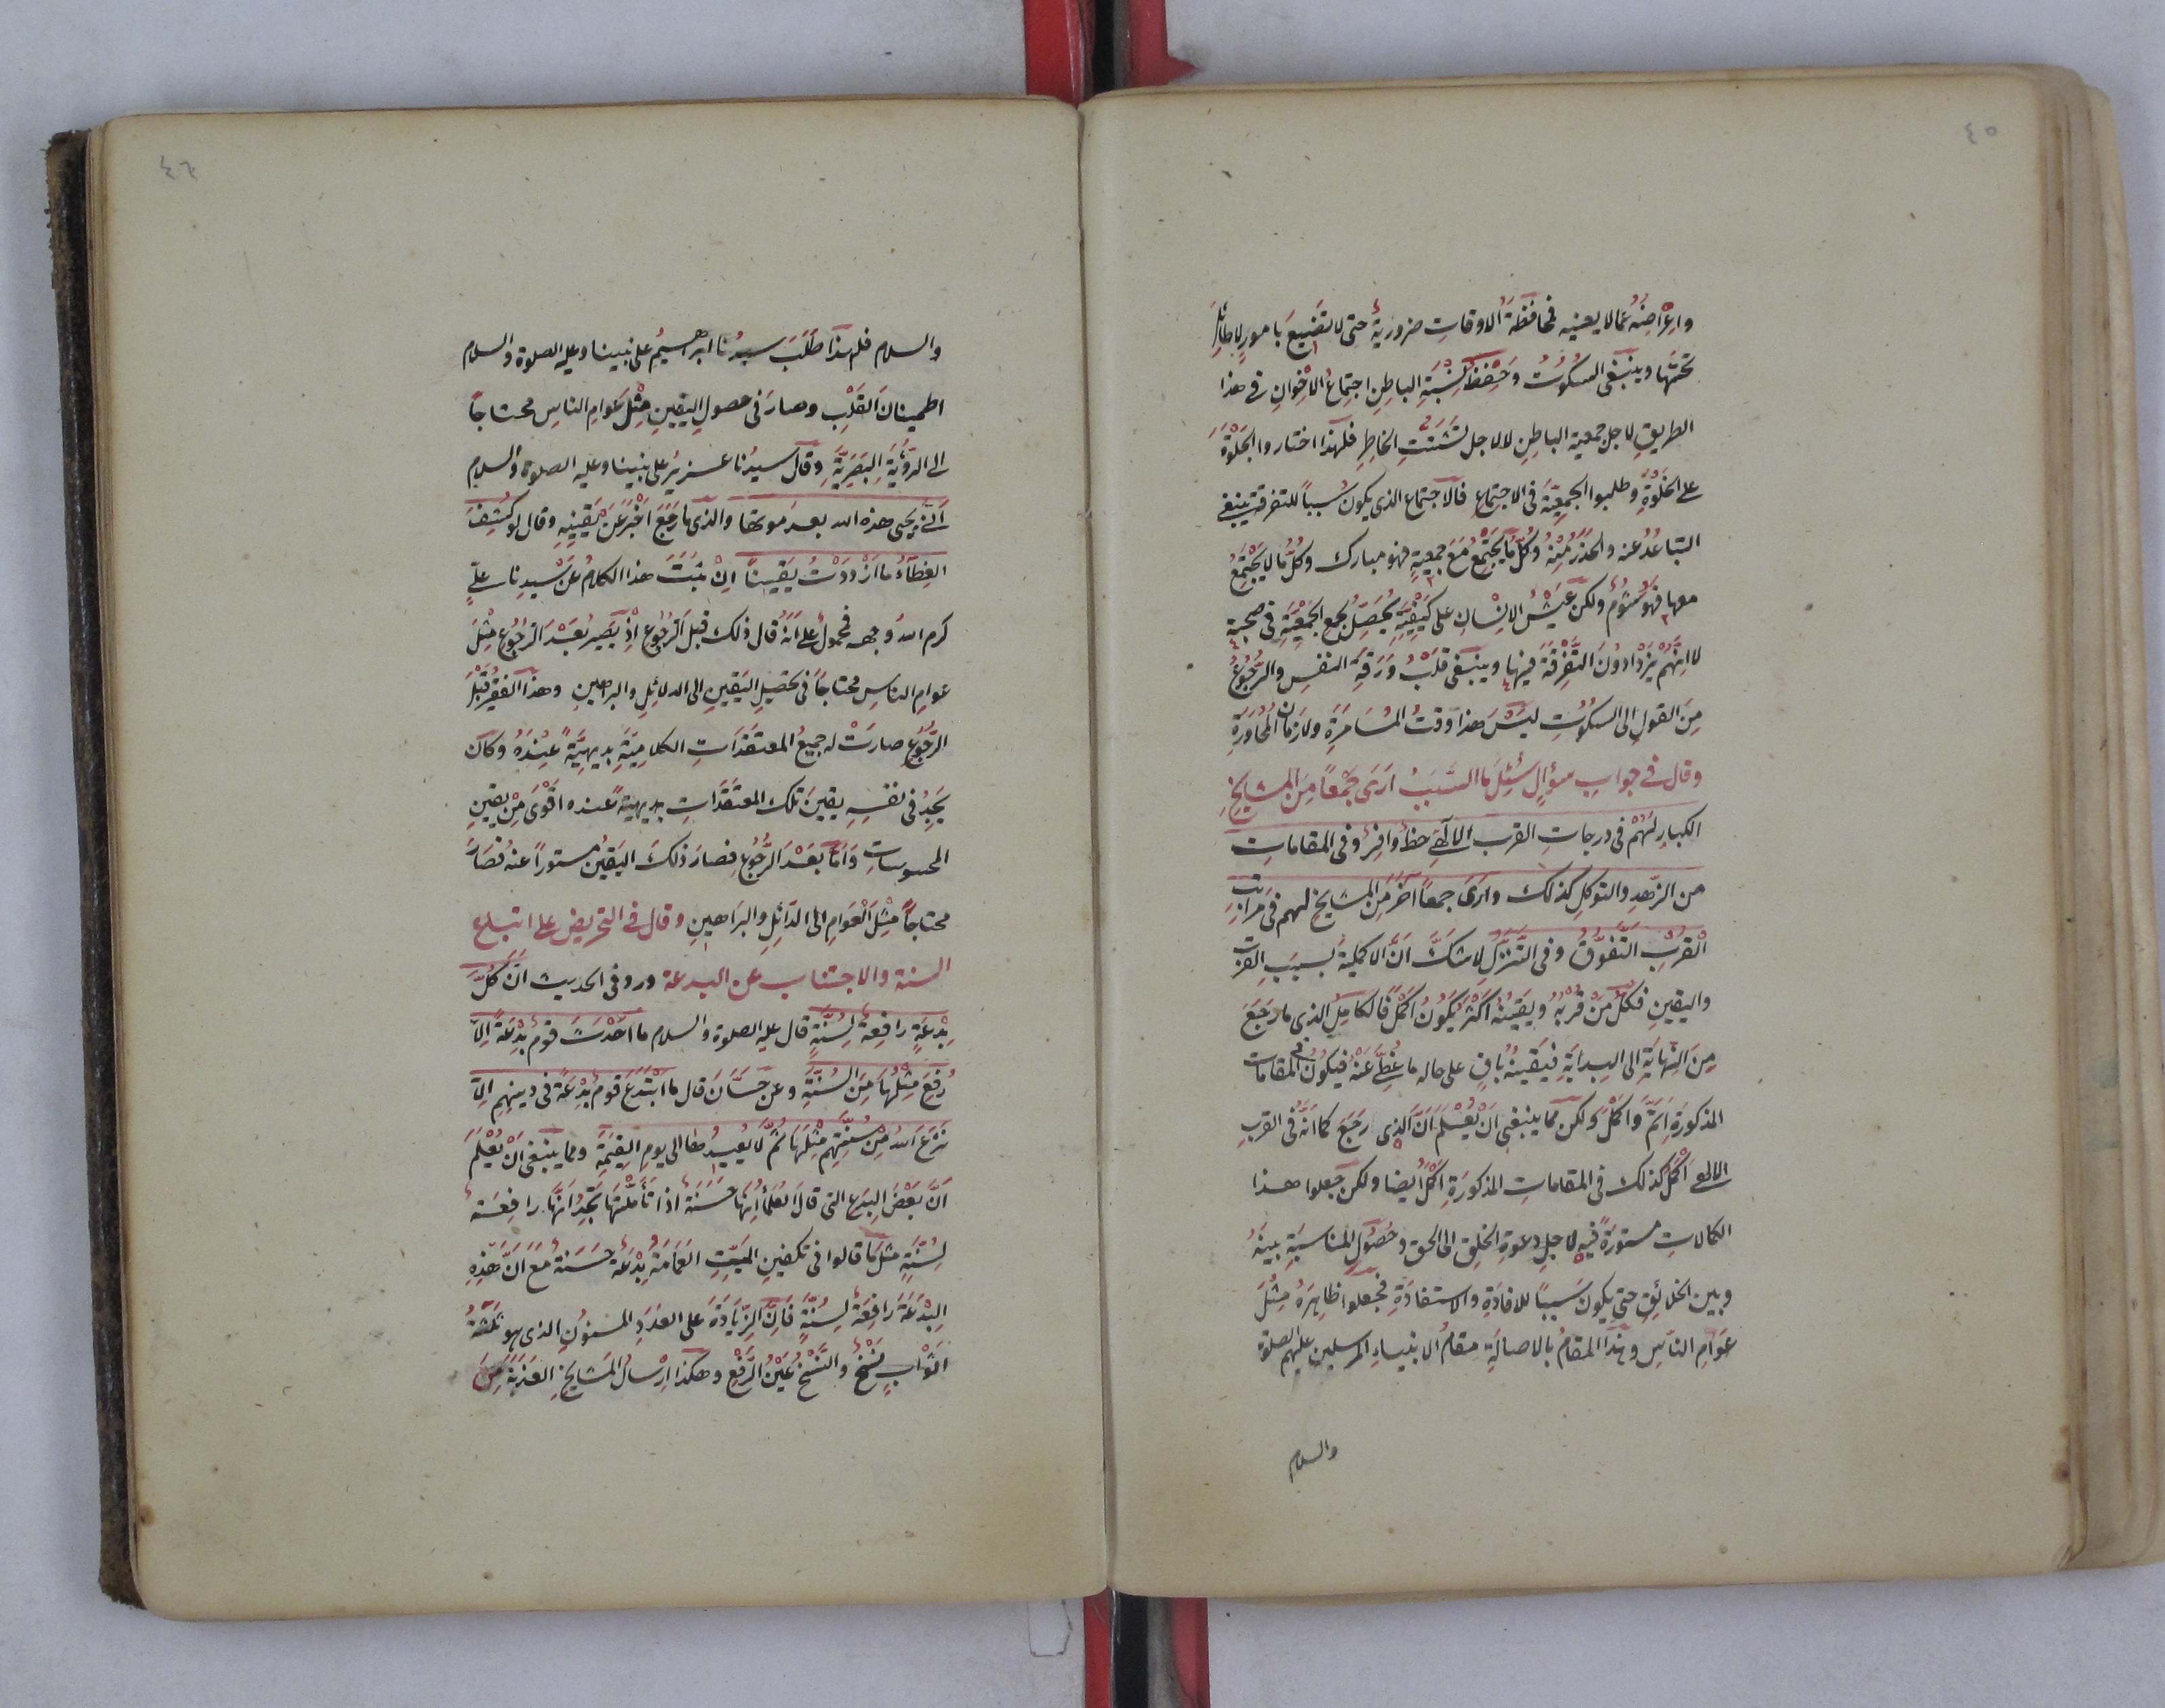 ٤٥
واعراضه عما لا يعنيه فمحافظة الاوقات ضرورية حتى لا تضيع بامور لا طائل
تحتها وينبغي السكوت وحفظ نسبة الباطن اجتماع الاخوان في هذا
الطريق لاجل جمعية الباطن لا لاجل تشتت الخاطر فلهذا اختاروا الجلوة
على الخلوة وطلبوا الجمعية في الاجتماع فالاجتماع الذي يكون سببا للتفرقة ينبغي
التباعد عنه والحذر منه وكل ما يجتمع مع جمعية فهو مبارك وكل ما لا يجتمع
معها فهو شؤم ولكن عيش الانسان على كيفية يحصل بجمع الجمعية في صحبة
لا انهم يزدادون التفرقة فيها وينبغي قلب ورقة النفس والرجوع
من القول الى السكوت ليس هذا وقت المسامرة ولا زمان المحاورة
وقال في جواب سؤال سئل ما السبب ارى جمعا من المشايخ
الكبار لهم في درجات القرب الالهي حظ وافر وفي المقامات
من الزهد والتوكل كذلك وارى جمعا آخر من المشايخ لهم في مراتب
القرب التفوق وفي التنزل لا شك ان الاكملية بسبب القرب
واليقين فكل من قربه ويقينه اكثر يكون اكمل فالكامل الذي ما رجع
من النهاية الى البداية فيقينه باق على حاله ما غطي عنه فيكون في المقامات
المذكورة اتم واكمل ولكن مما ينبغي ان يعلم ان الذي رجع كما انه في القرب
الالهي اكمل كذلك في المقامات المذكورة اكمل ايضا ولكن جعلوا هذا
الكمالات مستورة فيه لاجل دعوة الخلق الى الحق وحصول المناسبة بينه
وبين الخلائق حتى يكون سببا للافادة والاستفادة فجعلوا ظاهره مثل
عوام الناس وهذا المقام بالاصالة مقام الانبياء المرسلين عليهم الصلوة
والسلام
٤٦
والسلام فلهذا طلب سيدنا ابراهيم على نبينا وعليه الصلوة والسلام
اطمينان القلب وصار في حصول اليقين مثل عوام الناس محتاجا
الى الرؤية البصرية وقال سيدنا عزير على نبينا وعليه الصلوة والسلام
انى يحيى هذه الله بعد موتها والذي ما رجع اخبر عن يقينه وقال لو كشف
الغطاء ما ازددت يقينا ان ثبت هذا الكلام عن سيدنا علي
كرم الله وجهه فمحمول على انه قال ذلك قبل الرجوع اذ يصير بعد الرجوع مثل
عوام الناس محتاجا في تحصيل اليقين الى الدلائل والبراهين وهذا الفقير قبل
الرجوع صارت له جميع المعتقدات الكلامية بديهية عنده وكان
يجد في نفسه يقين تلك المعتقدات بديهية عنده اقوى من يقين
المحسوسات واما بعد الرجوع فصار ذلك اليقين مستورا عنه فصار
محتاجا مثل العوام الى الدائل والبراهين وقال في التحريض على اتباع
السنة والاجتناب عن البدعة ورد في الحديث ان كل
بدعة رافعة لسنة قال عليه الصلوة والسلام ما احدث قوم بدعة الا
رفع مثلها من السنة وعن حسان قال ما ابتدع قوم بدعة في دينهم الا
نزع الله من سنتهم مثلها ثم لا يعيدها الى يوم القيمة ومما ينبغي ان يعلم
ان بعض البدع التي قال العلماء انها حسنة اذا تأملتها تجد انها رافعة
لسنة مثل ما قالوا في تكفين الميت العمامة بدعة حسنة مع ان هذه
البدعة رافعة لسنة فان الزيادة على العدد المسنون الذي هو ثلثة
اثواب نسخ والنسخ عين الرفع وهكذا ارسال المشايخ العذبة من